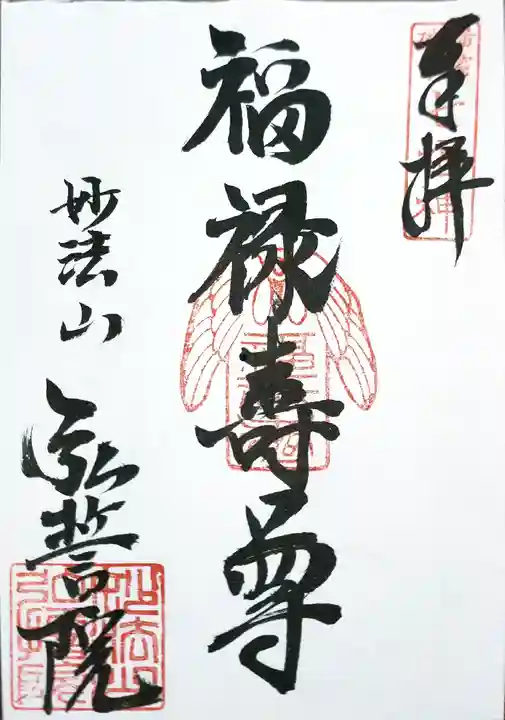 奉拝
福禄壽尊
妙法山
弘誓院